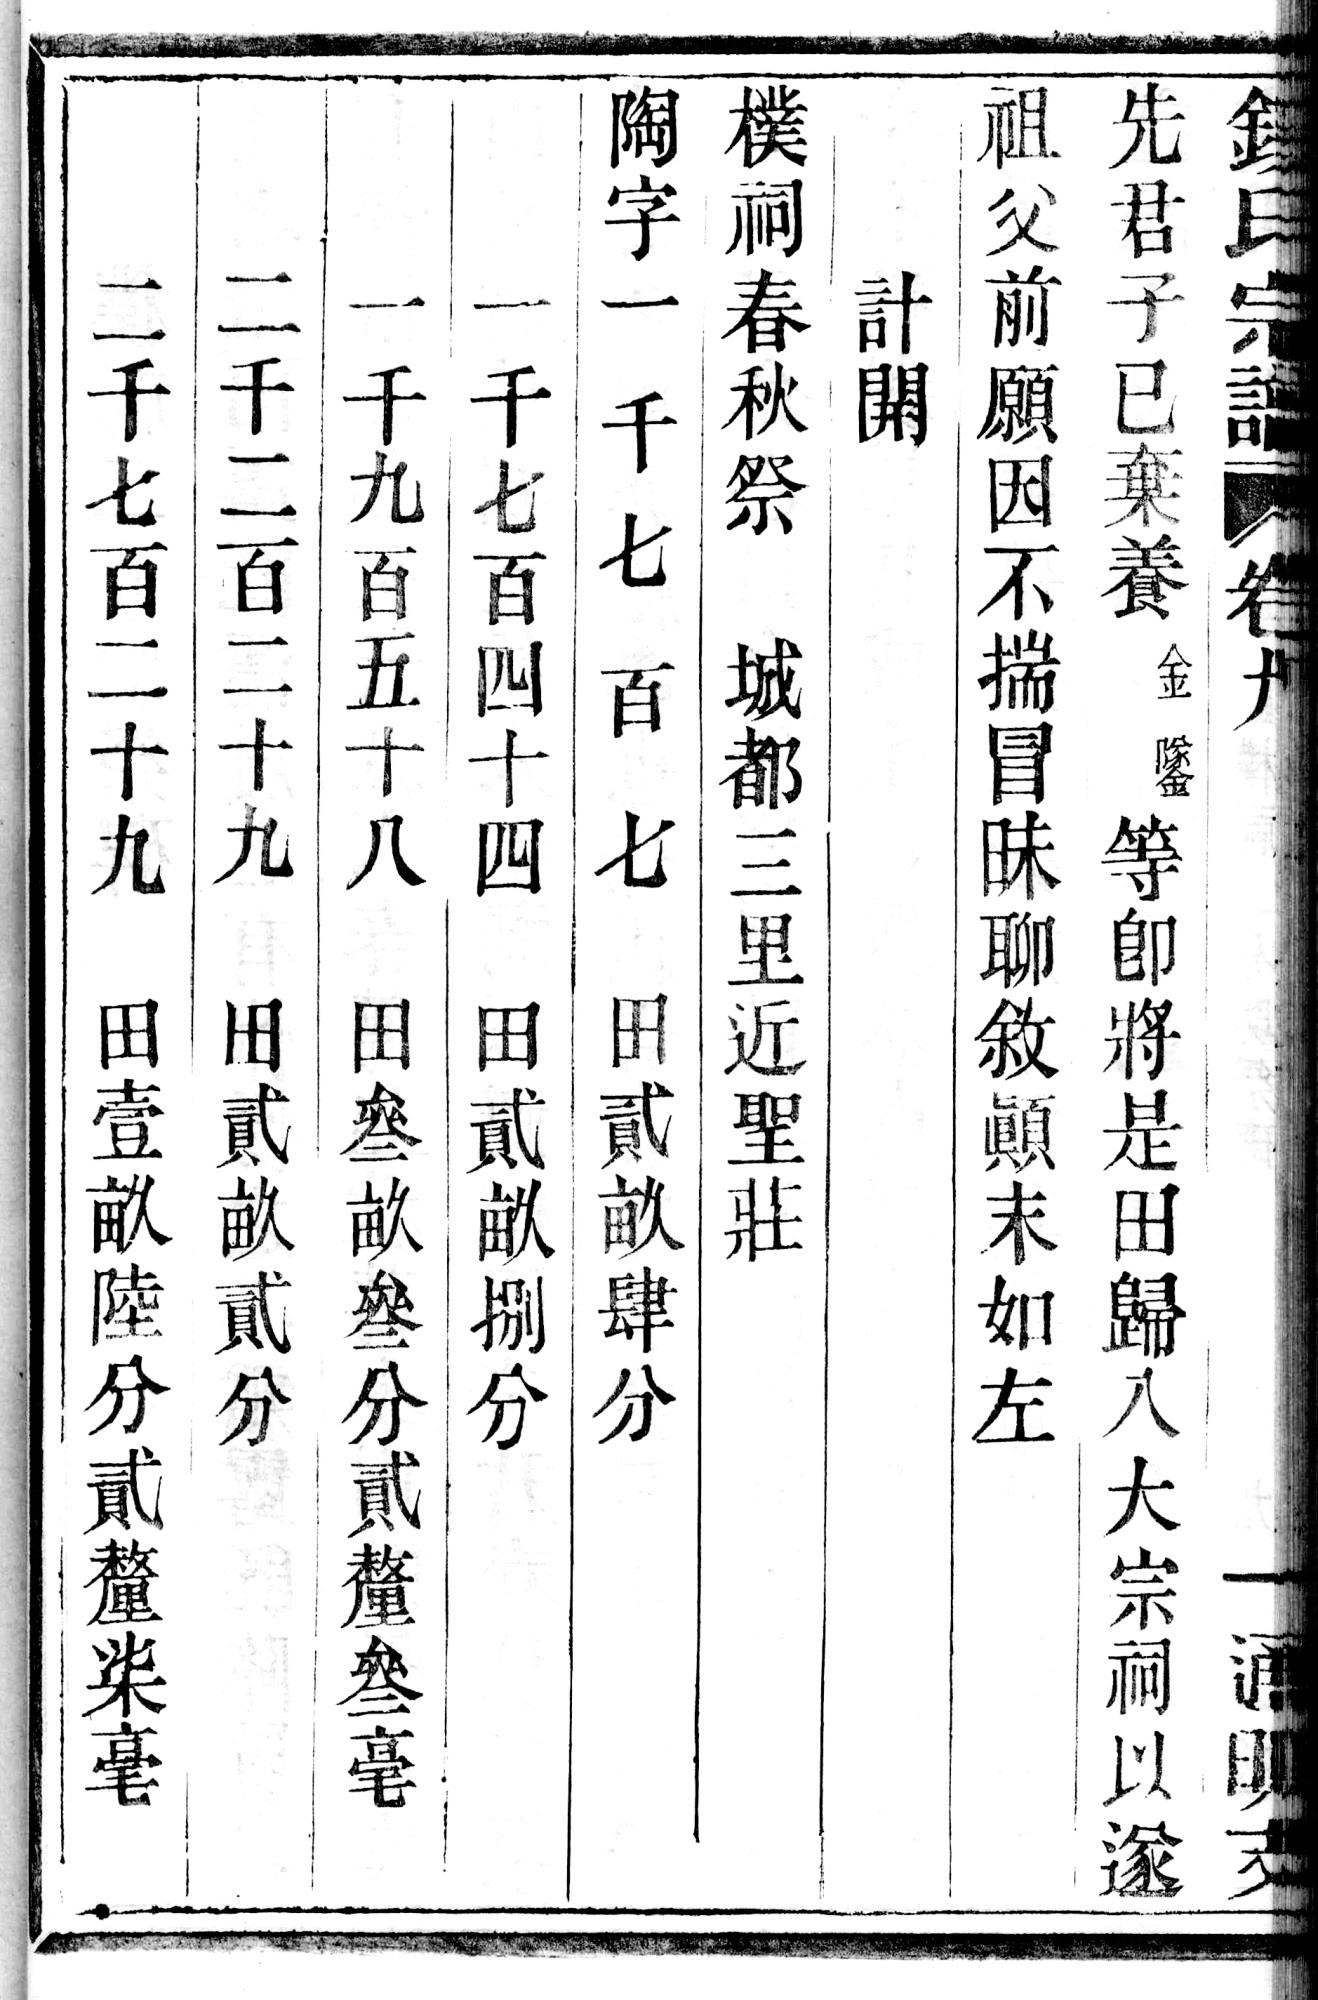 氏宗譜 卷九 一 通明支
先君子已棄養金鐆等卽將是田歸入大宗祠以遂
祖父前願因不揣冒昧聊敘顚末如左
計開
樸祠春秋祭 城都三里近聖莊
陶字一千七百七 田貳畝肆分
一千七百四十四 田貳畝捌分
一千九百五十八 田叄畝叄分貳釐叄毫
二千二百二十九 田貳畝貳分
二千七百二十九 田壹畝陸分貳釐柒毫